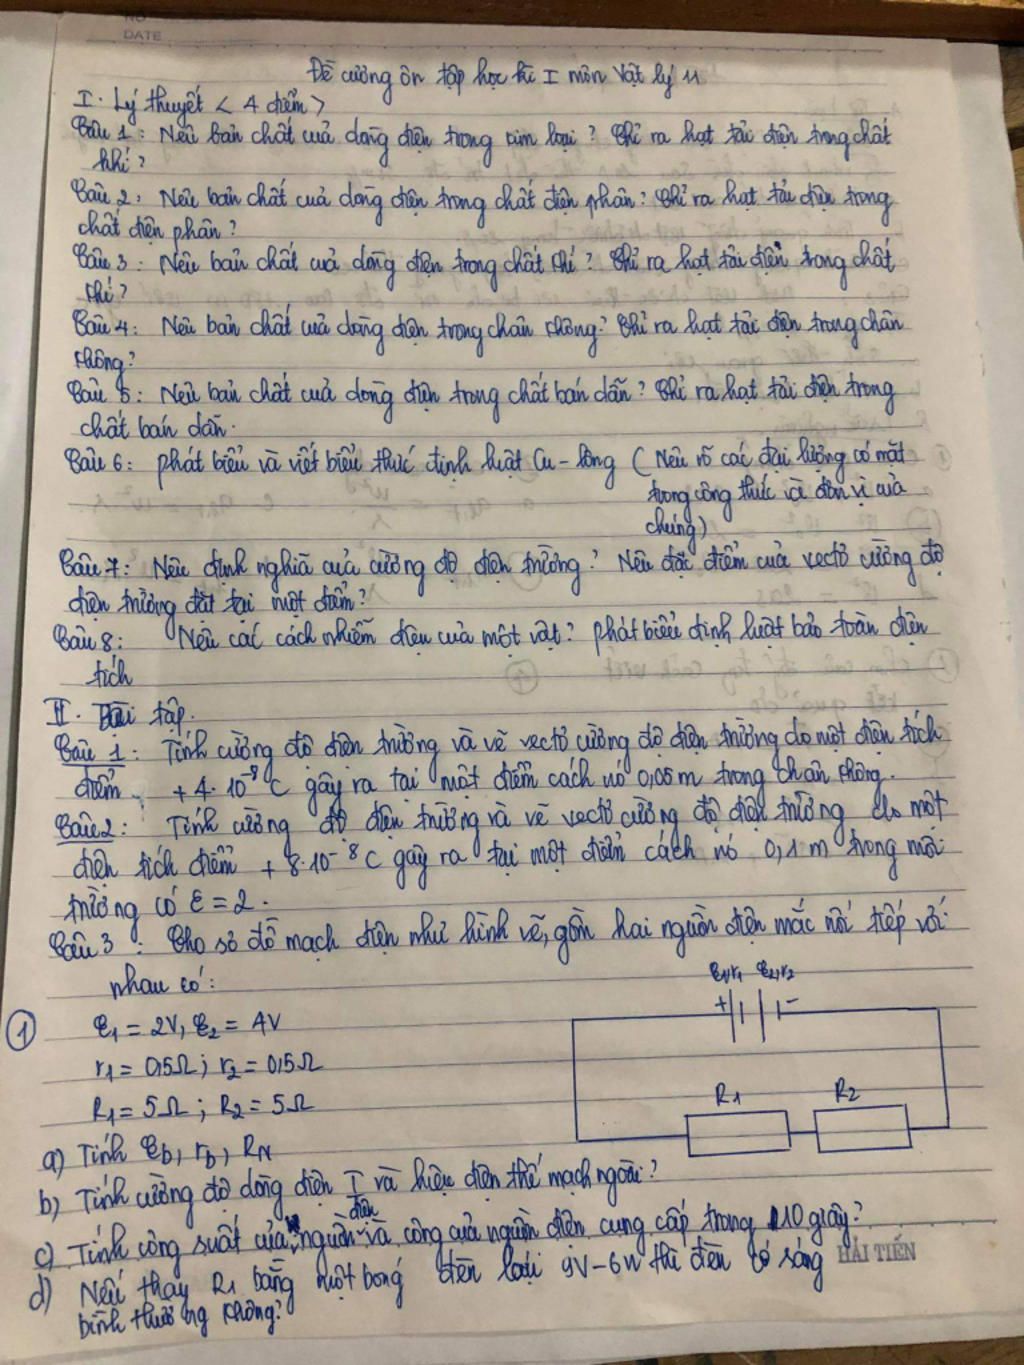 NO
DATE
Đề cương ôn tập học kì I môn Vật lý 11
I. Lý thuyết < 4 điểm >
Câu 1: Nêu bản chất của dòng điện trong kim loại? Chỉ ra hạt tải điện trong chất
khí?
Câu 2: Nêu bản chất của dòng điện trong chất điện phân? Chỉ ra hạt tải điện trong
chất điện phân?
Câu 3: Nêu bản chất của dòng điện trong chất khí? Chỉ ra hạt tải điện trong chất
khí?
Câu 4: Nêu bản chất của dòng điện trong chân không? Chỉ ra hạt tải điện trong chân
không?
Câu 5: Nêu bản chất của dòng điện trong chất bán dẫn? Chỉ ra hạt tải điện trong
chất bán dẫn.
Câu 6: phát biểu và viết biểu thức định luật Cu-lông (Nêu rõ các đại lượng có mặt
trong công thức và đơn vị của
chúng)
Câu 7: Nêu định nghĩa của cường độ điện trường? Nêu đặc điểm của vectơ cường độ
điện trường đặt tại một điểm?
Câu 8: Nêu các cách nhiễm điện của một vật? phát biểu định luật bảo toàn điện
tích
II. Bài tập.
Câu 1: Tính cường độ điện trường và vẽ vectơ cường độ điện trường do một điện tích
điểm +4.10⁻⁸C gây ra tại một điểm cách nó 0,05m trong chân không.
Câu 2: Tính cường độ điện trường và vẽ vectơ cường độ điện trường do một
điện tích điểm +8.10⁻⁸C gây ra tại một điểm cách nó 0,1m trong môi
trường có ε = 2.
Câu 3: Cho sơ đồ mạch điện như hình vẽ, gồm hai nguồn điện mắc nối tiếp với
nhau có:
ℰ1,r1 ℰ2,r2
+ -
① ℰ1 = 2V, ℰ2 = 4V
r1 = 0,5Ω; r2 = 0,5Ω
R1 = 5Ω; R2 = 5Ω
R1 R2
a) Tính ℰb, rb, RN
b) Tính cường độ dòng điện I và hiệu điện thế mạch ngoài?
điện
c) Tính công suất của nguồn và công của nguồn điện cung cấp trong 10 giây?
d) Nếu thay R1 bằng một bóng đèn loại 9V-6W thì đèn có sáng
HẢI TIẾN
bình thường không?